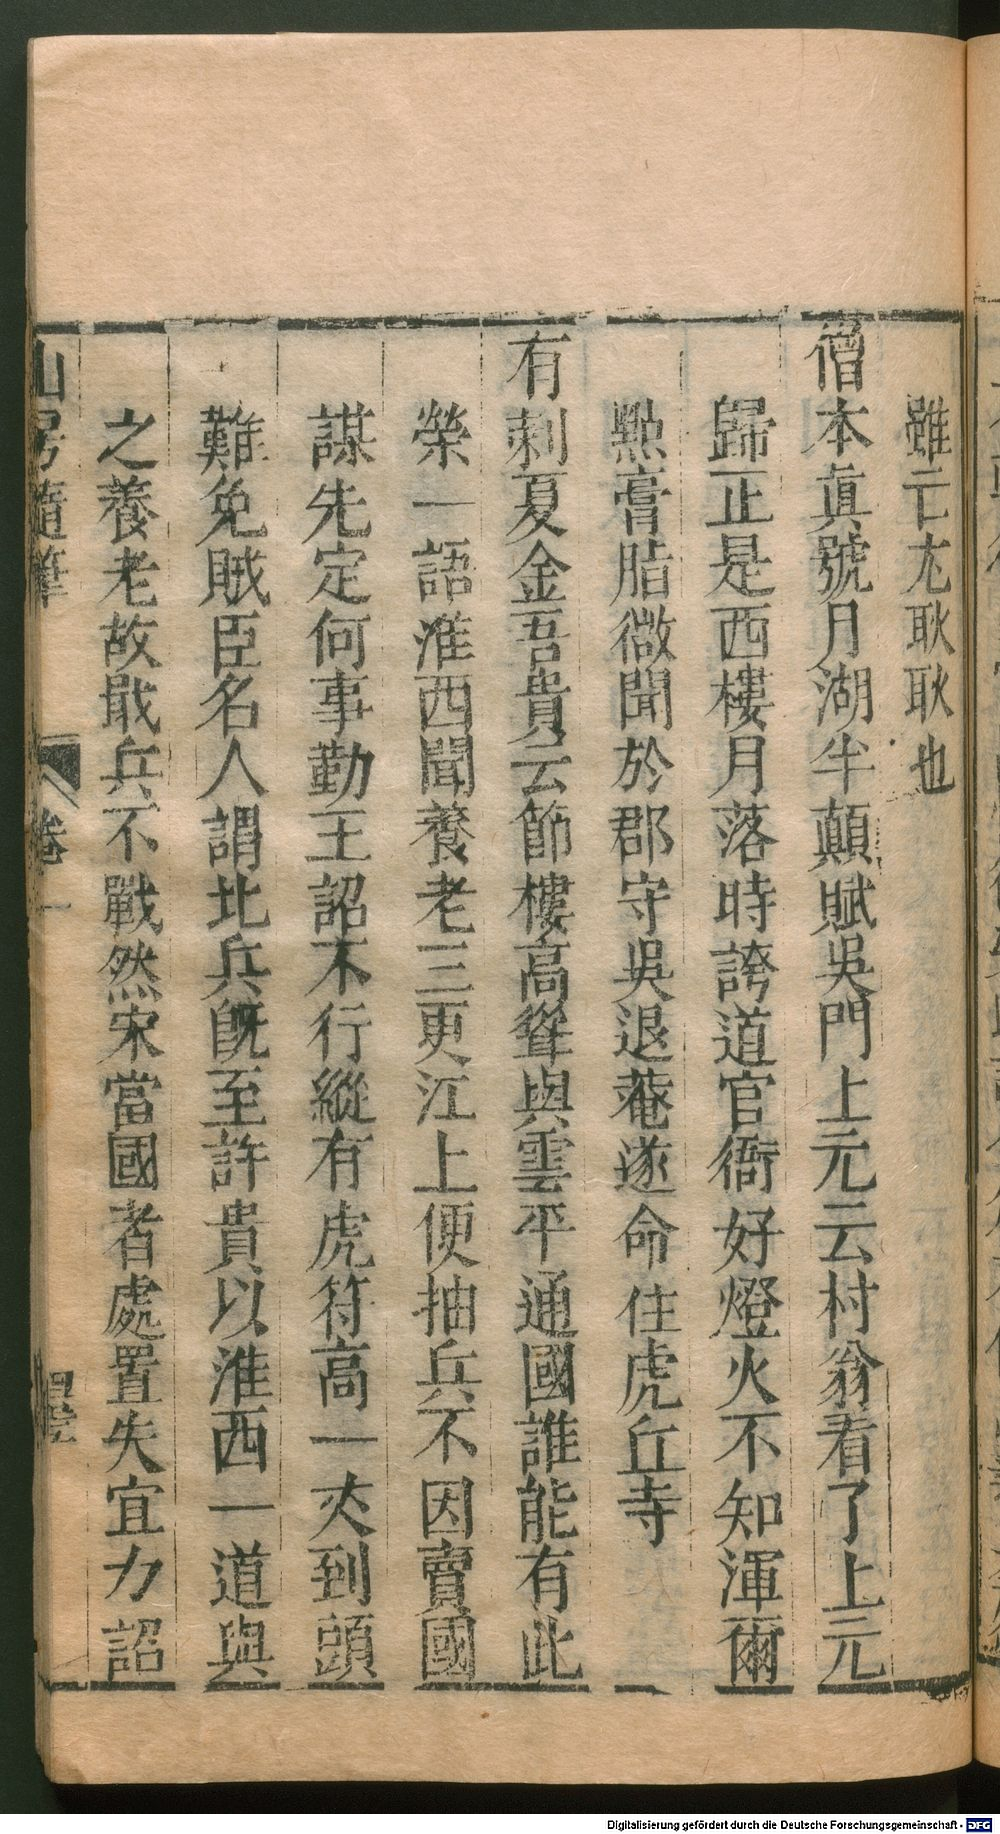 雖亡尤耿耿也
僧本眞號月湖半顛賦吳門上元云村翁看了上元
歸正是西樓月落時誇道官衙好燈火不知渾爾
㸃膏脂微聞於郡守吳退菴遂命住虎丘寺
有刺夏金吾貴云節樓高聳與雲平通國誰能有此
榮一語淮西聞養老三更江上便抽兵不因賣國
謀先定何事勤王詔不行縱有虎符高一𠀋到頭
難免賊臣名人謂北兵旣至許貴以淮西一道與
之養老故戢兵不戰然宋當國者處置失宜力詔
山房隨筆 卷一
Digitalisierung gefördert durch die Deutsche Forschungsgemeinschaft - DFG